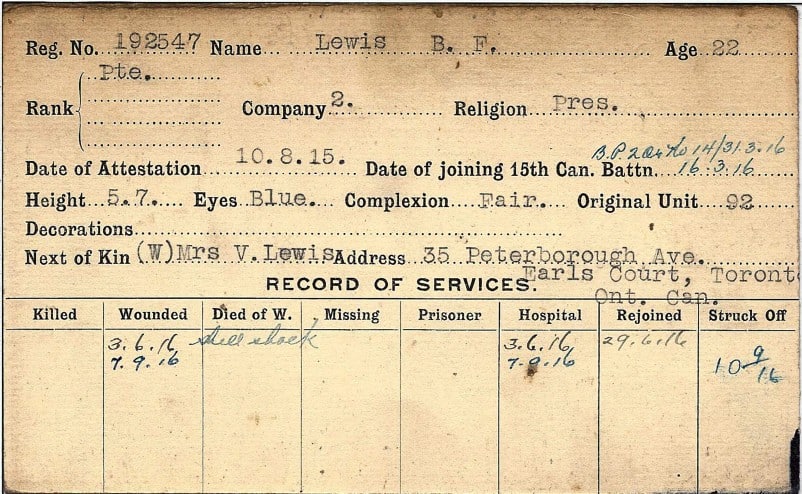 Reg. No. 192547 Name Lewis B. F. Age 22
Pte.
Rank Company 2. Religion Pres.
B.P. 2 O. No 14/31.3.16
Date of Attestation 10.8.15. Date of joining 15th Can. Battn. 16.3.16
Height 5.7. Eyes Blue. Complexion Fair. Original Unit 92
Decorations
Next of Kin (W)Mrs V.Lewis Address 35 Peterborough Ave.
Earls Court, Toronto
Ont. Can.
RECORD OF SERVICES.
Killed Wounded Died of W. Missing Prisoner Hospital Rejoined Struck Off
3.6.16 shell shock 3.6.16 29.6.16
7.9.16 7.9.16 10 9/16